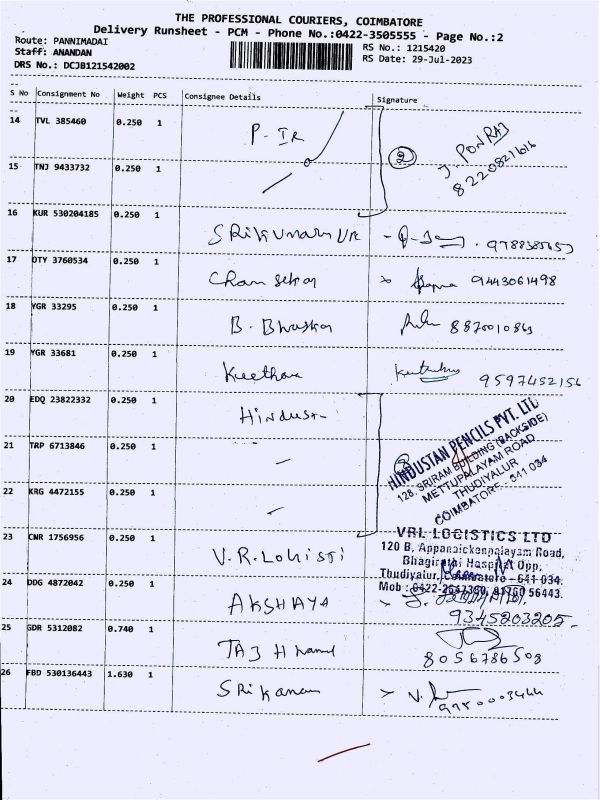 THE PROFESSIONAL COURIERS, COIMBATORE
Delivery Runsheet - PCM - Phone No.:0422-3505555 - Page No.:2
Route: PANNIMADAI
Staff: ANANDAN
DRS No.: DCJB121542002
RS No.: 1215420
RS Date: 29-Jul-2023
S No Consignment No Weight PCS Consignee Details Signature
14 TVL 385460 0.250 1 P-IR
J. PONRAJ
15 TNJ 9433732 0.250 1
16 KUR 530204185 0.250 1
17 OTY 3760534 0.250 1 9443061498
18 YGR 33295 0.250 1 B. Bhaskar
19 YGR 33681 0.250 1 Keethar 9597452156
20 EDQ 23822332 0.250 1 Hindust-
21 TRP 6713846 0.250 1 -
22 KRG 4472155 0.250 1 -
HINDUSTAN PENCILS PVT. LTD
128, SRIRAM BUILDING (BACKSIDE)
METTUPALAYAM ROAD
THUDIYALUR
COIMBATORE 641 034
23 CNR 1756956 0.250 1 V.R.Lohisti
VRL LOGISTICS LTD
120 B, Appanaickenpalayam Road,
Bhagirathi Hospital Opp,
Thudiyalur, Coimbatore - 641 034.
24 DDG 4872042 0.250 1 AKSHAYA
9345203205
25 GDR 5312082 0.740 1 TAJ H
8056786508
26 FBD 530136443 1.630 1 SRikanam